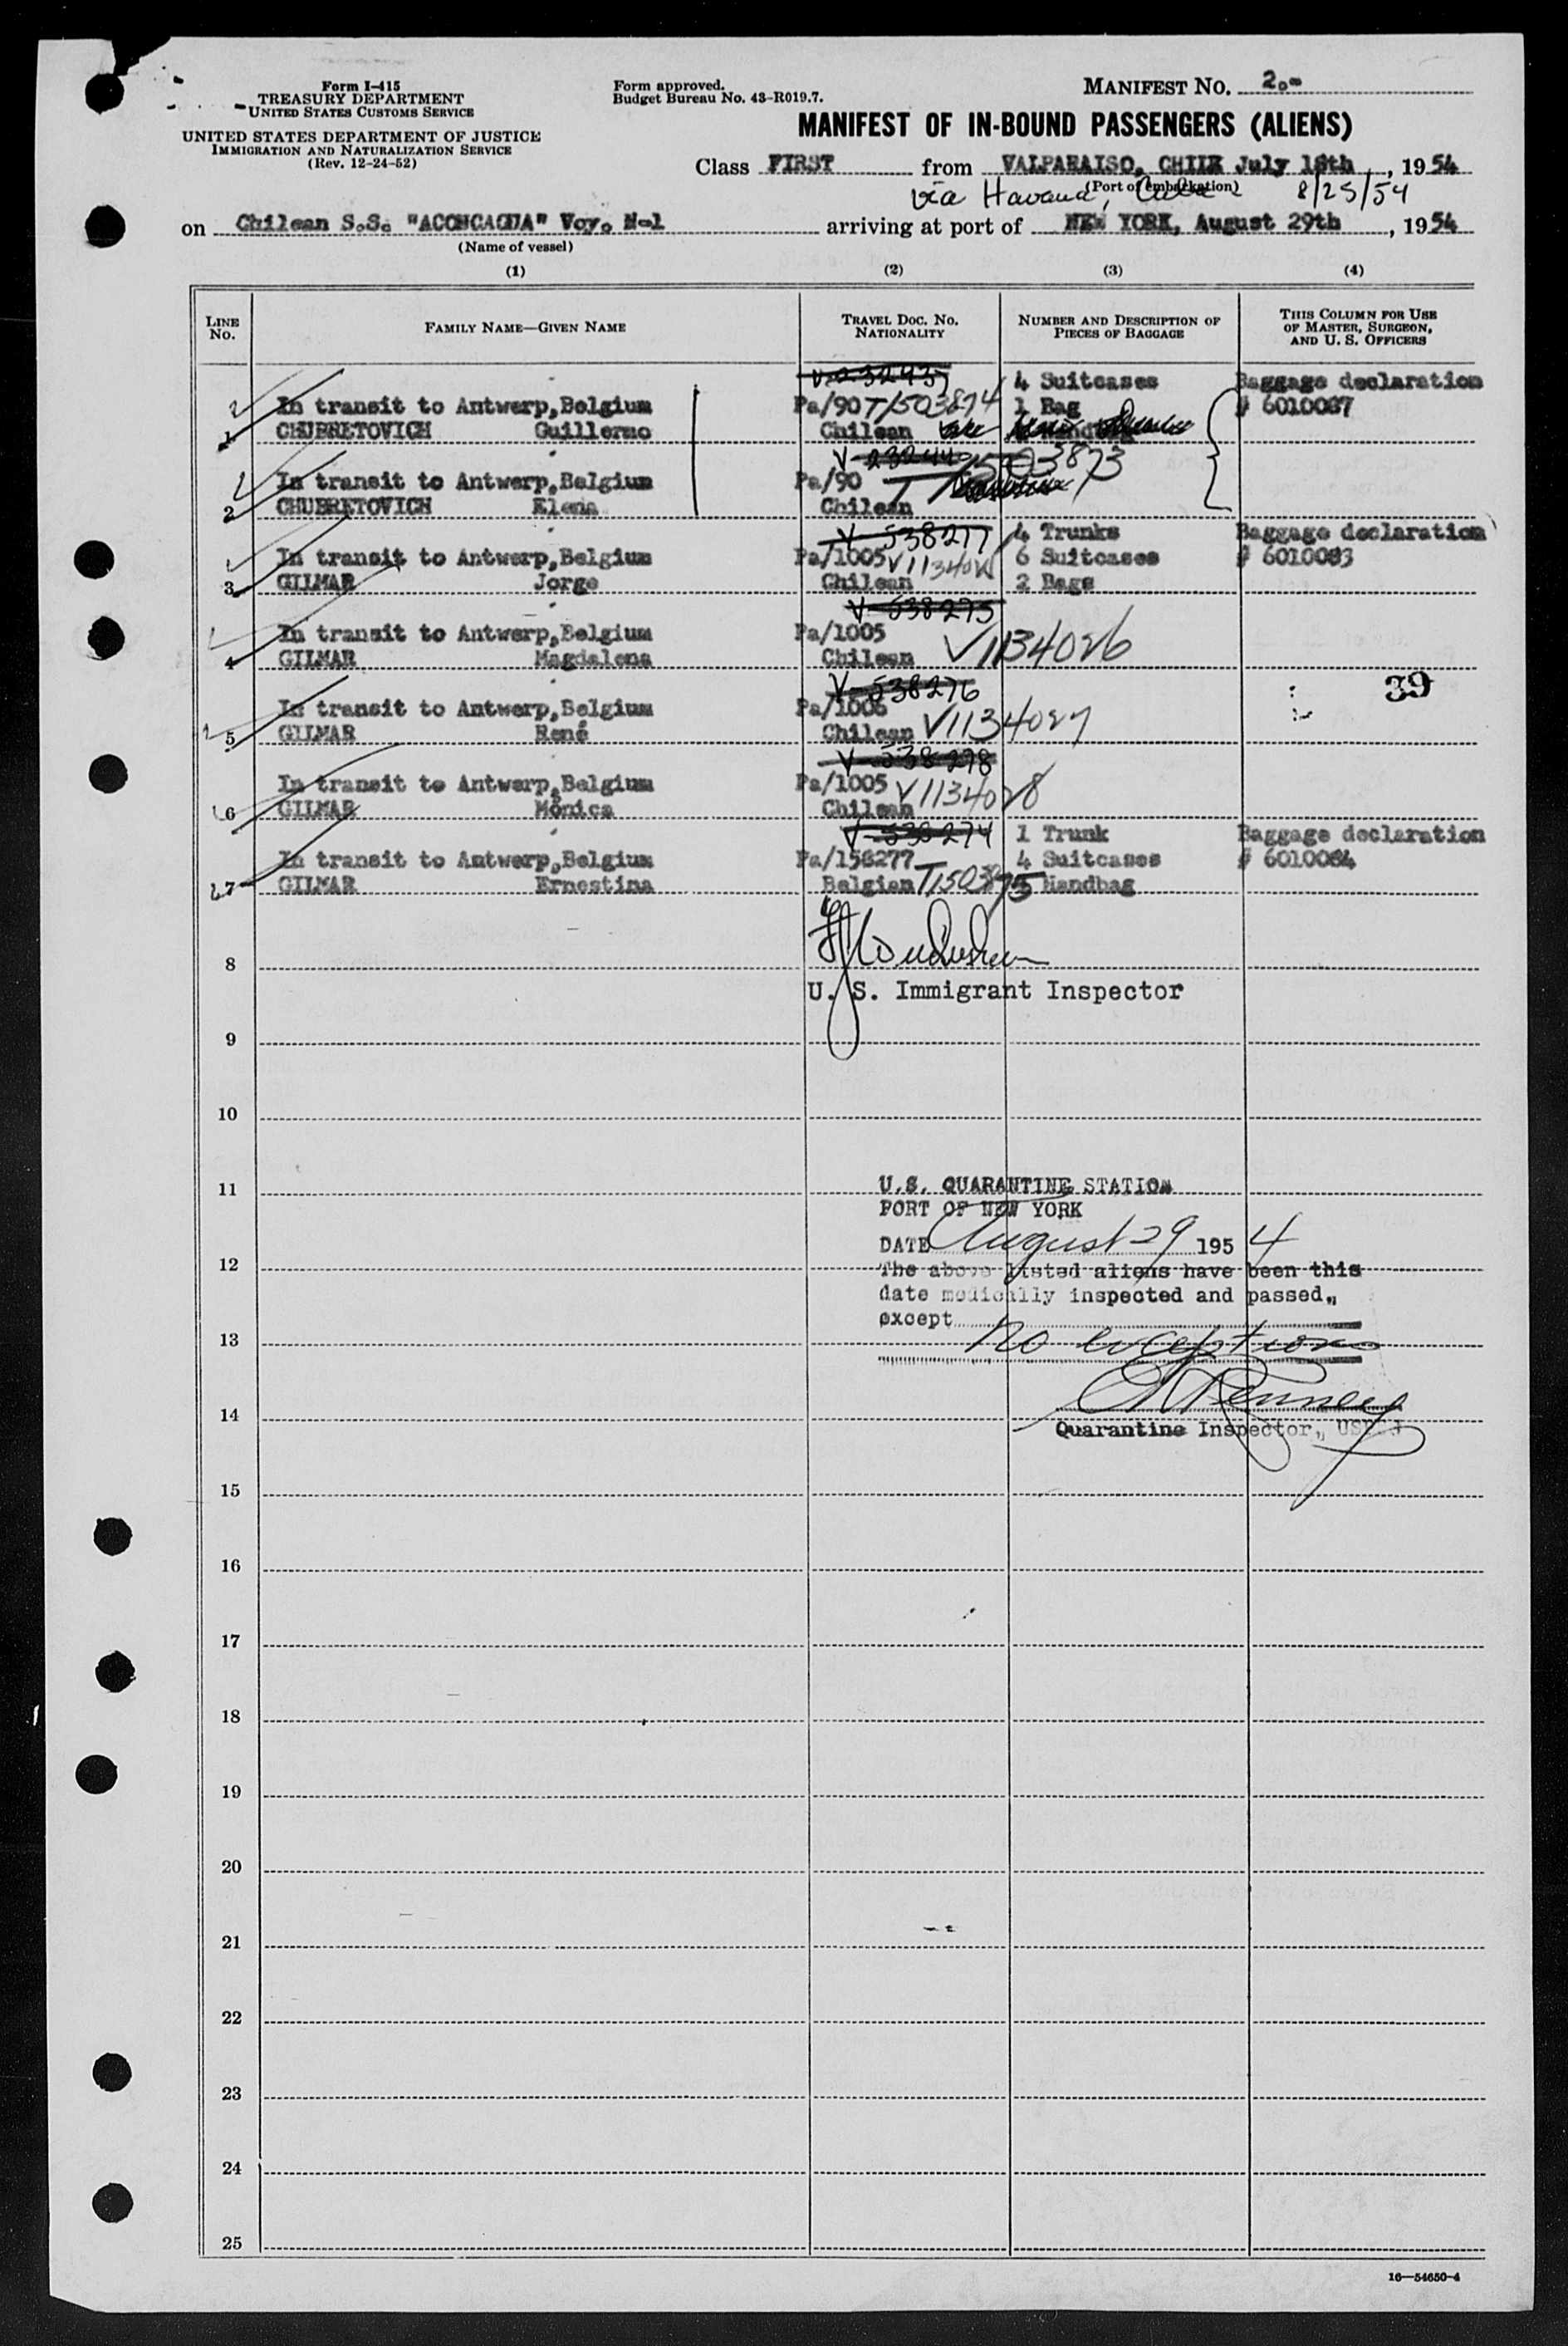 Form I-415
TREASURY DEPARTMENT
UNITED STATES CUSTOMS SERVICE
UNITED STATES DEPARTMENT OF JUSTICE
IMMIGRATION AND NATURALIZATION SERVICE
(Rev. 12-24-52)
Form approved.
Budget Bureau No. 43-R019.7.
MANIFEST NO. 20-
MANIFEST OF IN-BOUND PASSENGERS (ALIENS)
Class FIRST from VALPARAISO, CHILE July 18th, 1954
(Port of embarkation)
via Havana, Cuba 8/25/54
on Chilean S.S. "ACONCAGUA" Voy. N-1 arriving at port of NEW YORK, August 29th, 1954
(Name of vessel)
(1) (2) (3) (4)
LINE NO.
FAMILY NAME—GIVEN NAME
TRAVEL DOC. NO. NATIONALITY
NUMBER AND DESCRIPTION OF PIECES OF BAGGAGE
THIS COLUMN FOR USE OF MASTER, SURGEON, AND U. S. OFFICERS
V-232937 4 Suitcases Baggage declaration
In transit to Antwerp,Belgium Pa/90 T1503874 1 Bag # 6010087
1 CHUBRETOVICH Guillermo Chilean
V-23244
In transit to Antwerp,Belgium Pa/90 T1503873
2 CHUBRETOVICH Elena Chilean
V-538277 4 Trunks Baggage declaration
In transit to Antwerp,Belgium Pa/1005 6 Suitcases # 6010083
3 GILMAR Jorge Chilean 2 Bags
V-538275
In transit to Antwerp,Belgium Pa/1005
4 GILMAR Magdalena Chilean V1134026
V-538276
39
In transit to Antwerp,Belgium Pa/1006
5 GILMAR René Chilean V1134027
V-538278
In transit to Antwerp,Belgium Pa/1005 V1134028
6 GILMAR Mónica Chilean
V-538274 1 Trunk Baggage declaration
In transit to Antwerp,Belgium Pa/158277 4 Suitcases # 6010084
7 GILMAR Ernestina Belgian T1503875 Handbag
8
U. S. Immigrant Inspector
9
10
11
U.S. QUARANTINE STATION
PORT OF NEW YORK
DATE August 29 1954
12
The above listed aliens have been this
date medically inspected and passed,
except
13 no exceptions
14
Quarantine Inspector,
15
16
17
18
19
20
21
22
23
24
25
16—54650-4